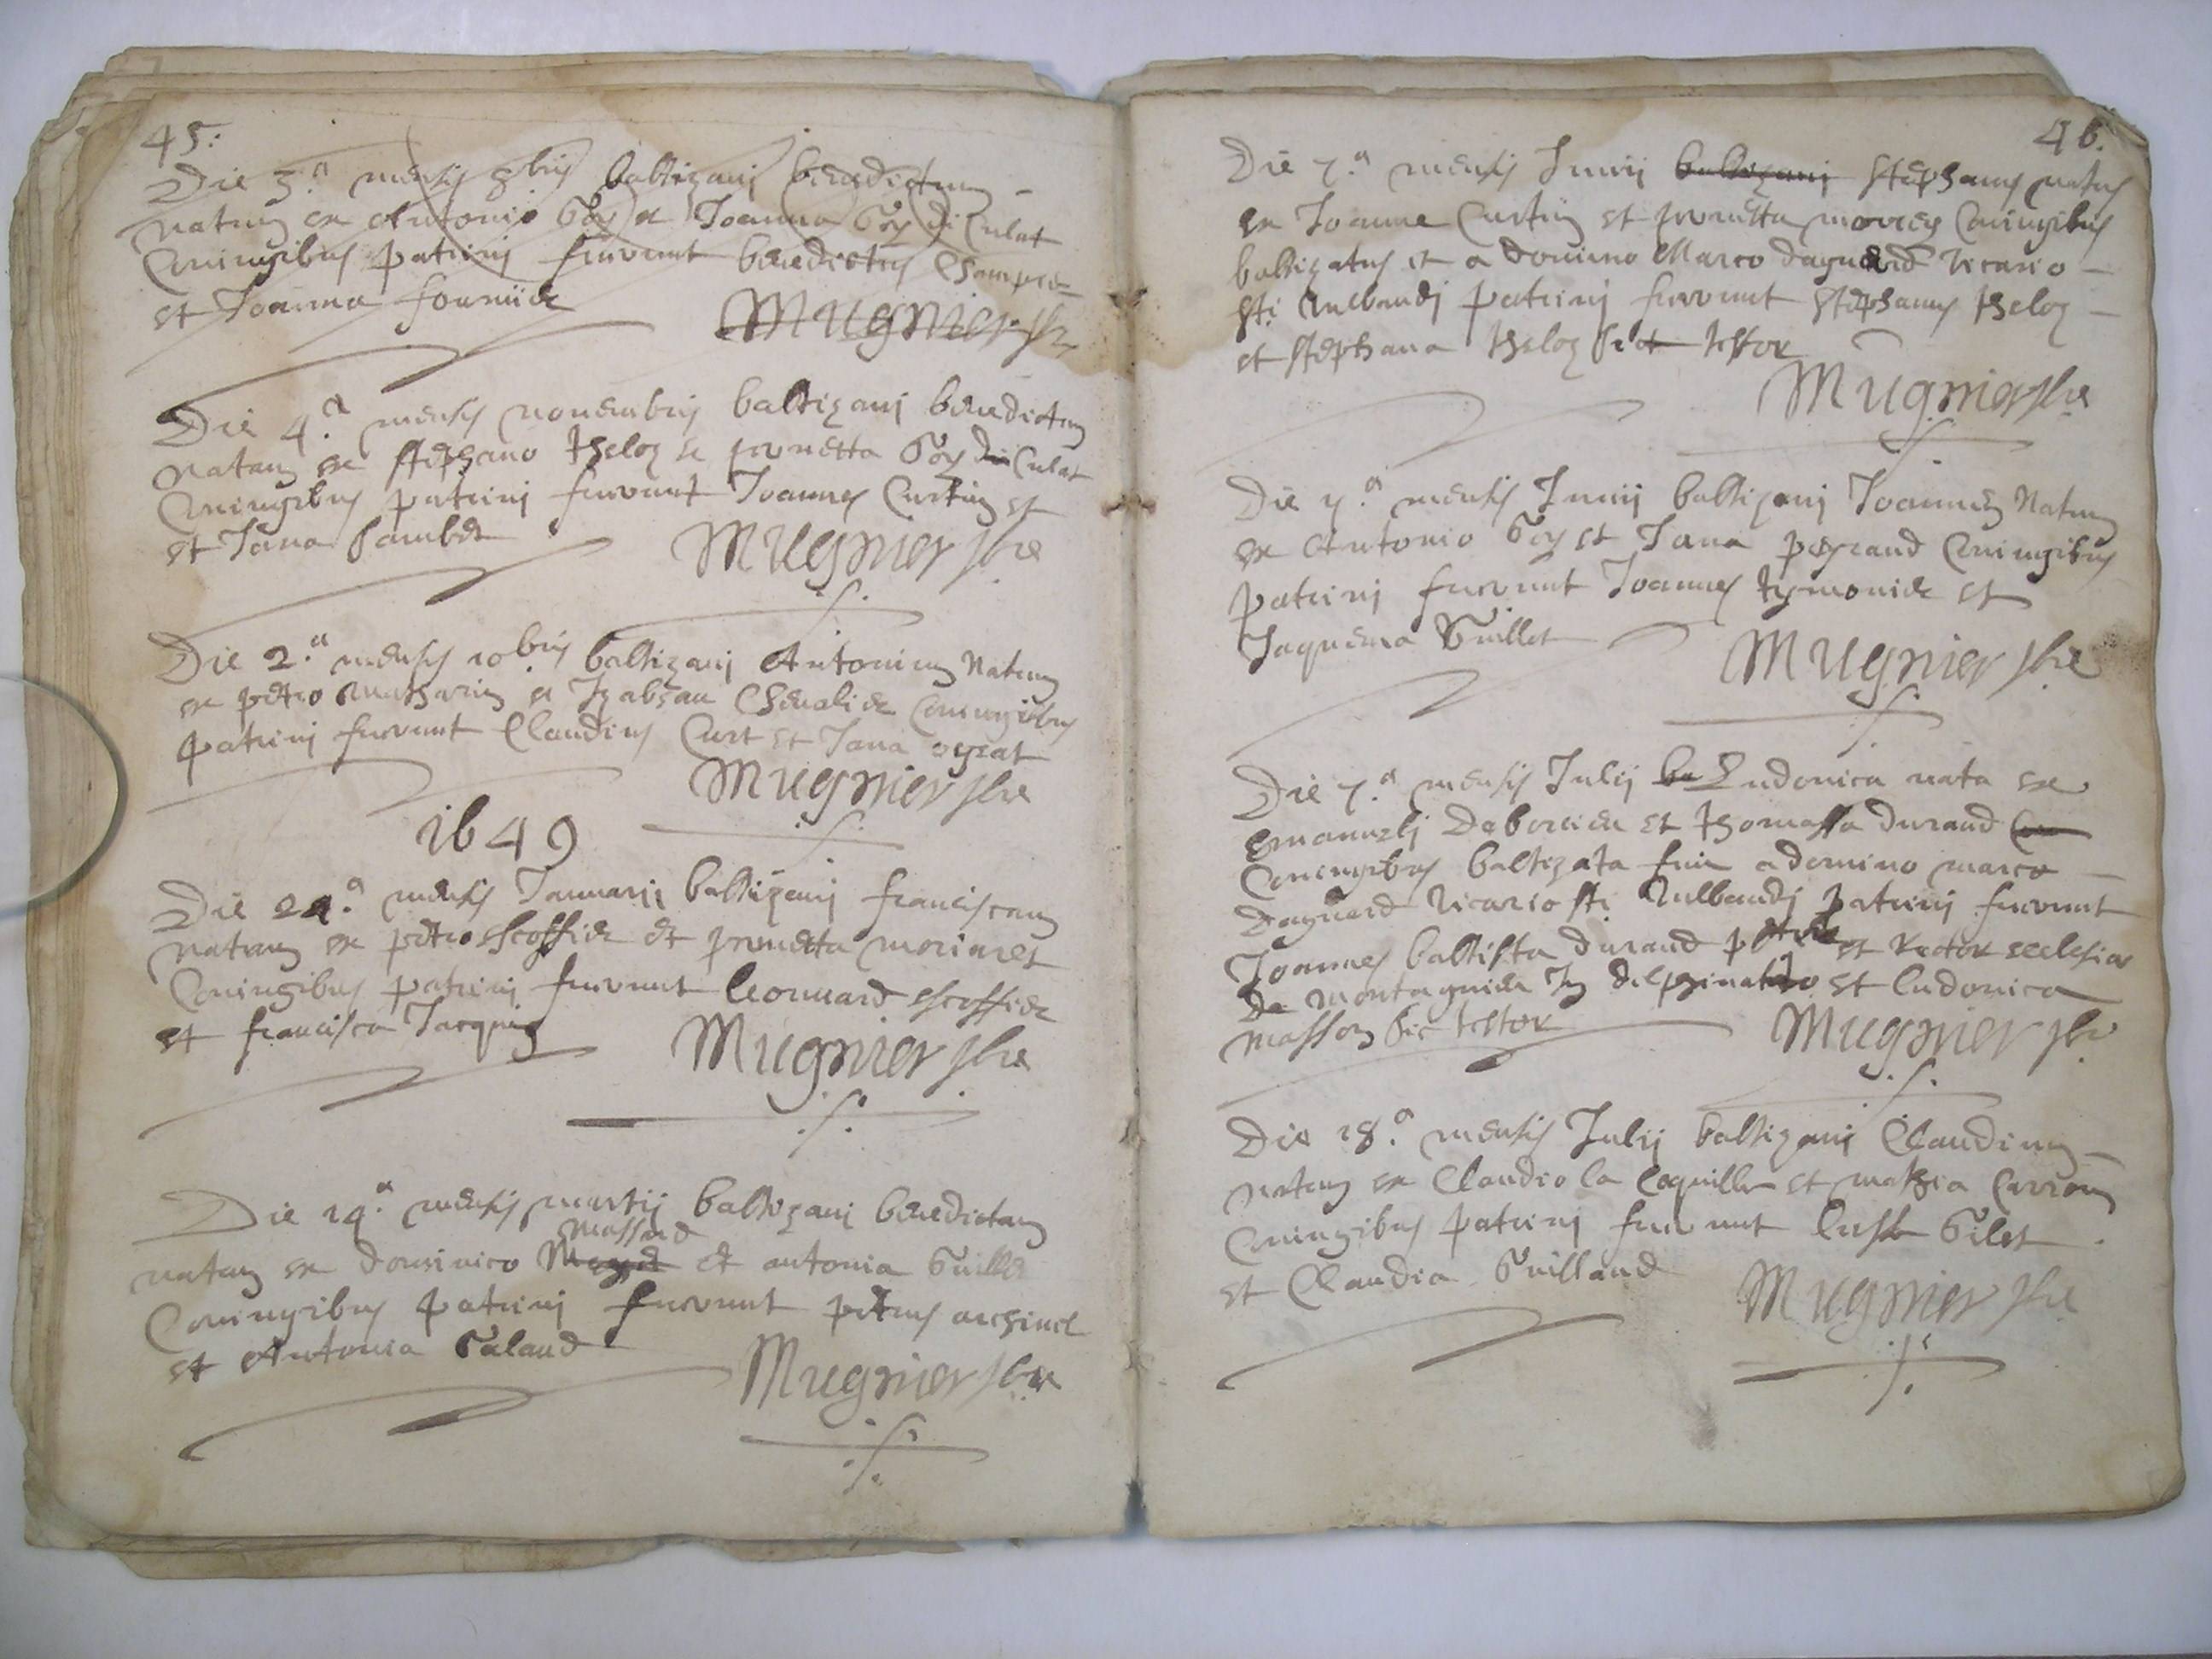 45:
Die 3.a mensis 8bris baptizavi benedictum
natum ex Antonio Goy et Joanna Goy di Culat
Coniugibus patrini fuerunt benedictus
et Joanna fournier
Mugnier pbr
Die 4.a mensis novembris baptizavi benedictam
natam ex stephano theloz et pernetta Goy di Culat
Coniugibus patrini fuerunt Joannes Curtin et
et Jana
Mugnier pbr
Die 2.a mensis 10bris baptizavi Antonium Natum
ex petro et Izabeau Chevalier Coniugibus
patrini fuerunt Claudius Curt et Jana
Mugnier pbr
1649
Die 21.a mensis Januarii baptizavi franciscam
natam ex petro escoffier et pernetta
Coniugibus patrini fuerunt leonnard escoffier
et francisca Jacquin
Mugnier pbr
Die 14.a mensis martii baptizavi benedictam
massard
natam ex dominico et antonia Guillet
Coniugibus patrini fuerunt petrus
et Antonia
Mugnier pbr
46.
Die 7.a mensis Junii baptizavi stephanus natus
ex Joanne Curtin et pernetta Coniugibus
baptizatus et a domino Marco dagnard vicario
sti Rulbandi patrini fuerunt stephanus theloz
et stephana theloz sic testor
Mugnier pbr
Die 7.a mensis Junii baptizavi Joannem Natum
ex Antonio Goy et Jana peyraud Coniugibus
patrini fuerunt Joannes tymonier et
Jaquema Guillet
Mugnier pbr
Die 7.a mensis Julii ba Ludovica nata ex
Emanueli Debornier et thomassa durand
Coniugibus baptizata fuit a domino marco
Dagnard vicario sti Rulbandi patrini fuerunt
Joannes baptista durand et Rector ecclesiae
de montagnier et ludovica
masson sic testor
Mugnier pbr
Die 18.a mensis Julii baptizavi Claudium
natum ex Claudio la Coquille et mathia
Coniugibus patrini fuerunt Gilet
et Claudia Guilland
Mugnier pbr